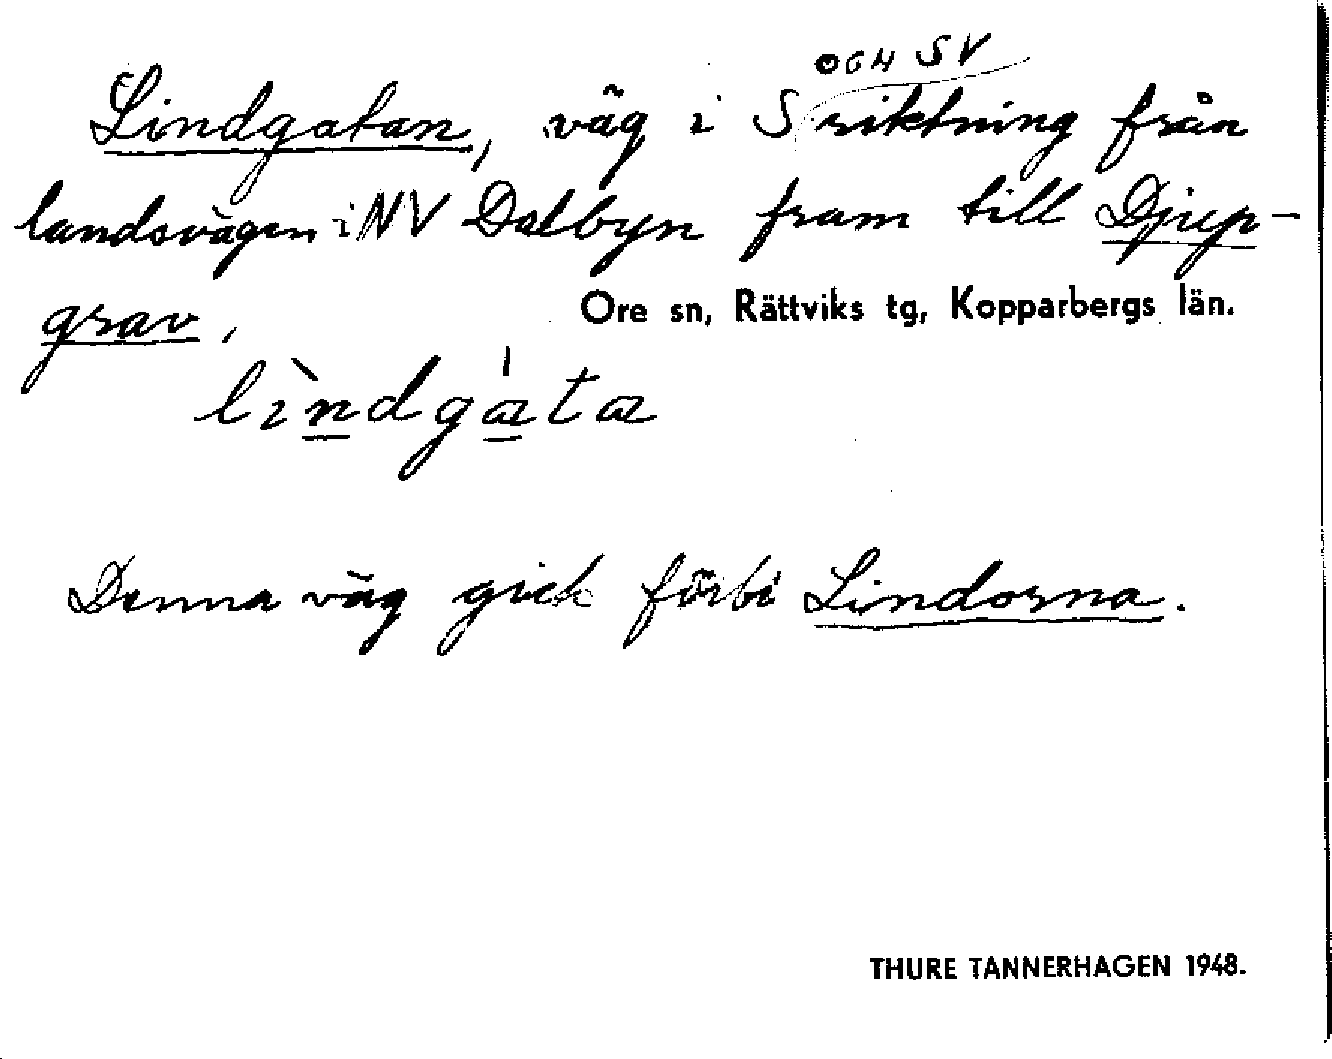 och SV
Lindgatan, väg i S riktning från
landsvägen i NV Dalbyn fram till Djup-
grav,
Ore sn, Rättviks tg, Kopparbergs län.
lìndgáta
Denna väg gick förbi Lindorna.
THURE TANNERHAGEN 1948.